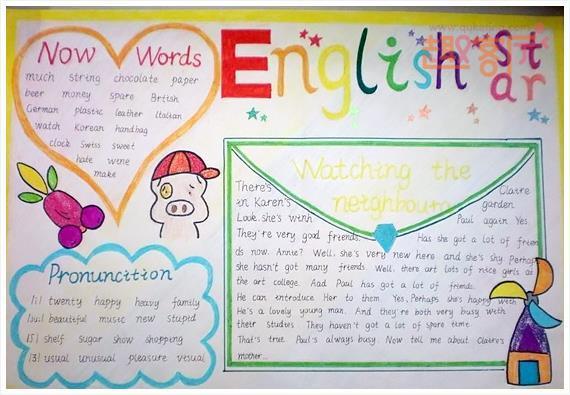 Now Words
much string chocolate paper
beer money spare British
German plastic leather Italian
watch Korean handbag
clock Swiss sweet
hate wine
make
English St
ar
Pronuncition
|i| twenty happy heavy family
|ju:| beautiful music new stupid
|ʃ| shelf sugar show shopping
|ʒ| usual unusual pleasure visual
Watching the
neighbours
There's Claire
in Karen's garden
Look, she's with Paul again Yes.
They're very good friends. Has she got a lot of frien
ds now. Annie? Well, she's very new here and she's shy Perhap
she hasn't got many friends Well, there art lots of nice girls at
the art college. And Paul has got a lot of friends.
He can introduce Her to them Yes, Perhaps she's happy with
He's a lovely young man. And they're both very busy with
their studies They haven't got a lot of spare time
That's true Paul's always busy. Now tell me about Claire's
mother...